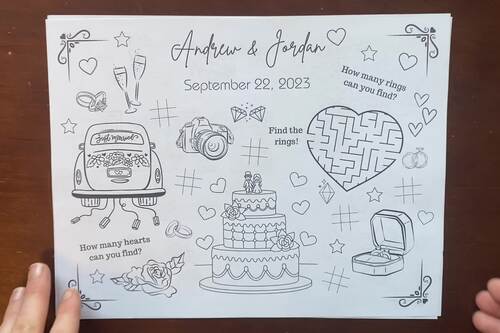 Andrew & Jordan
September 22, 2023
How many rings
can you find?
Find the
rings!
Just married
How many hearts
can you find?